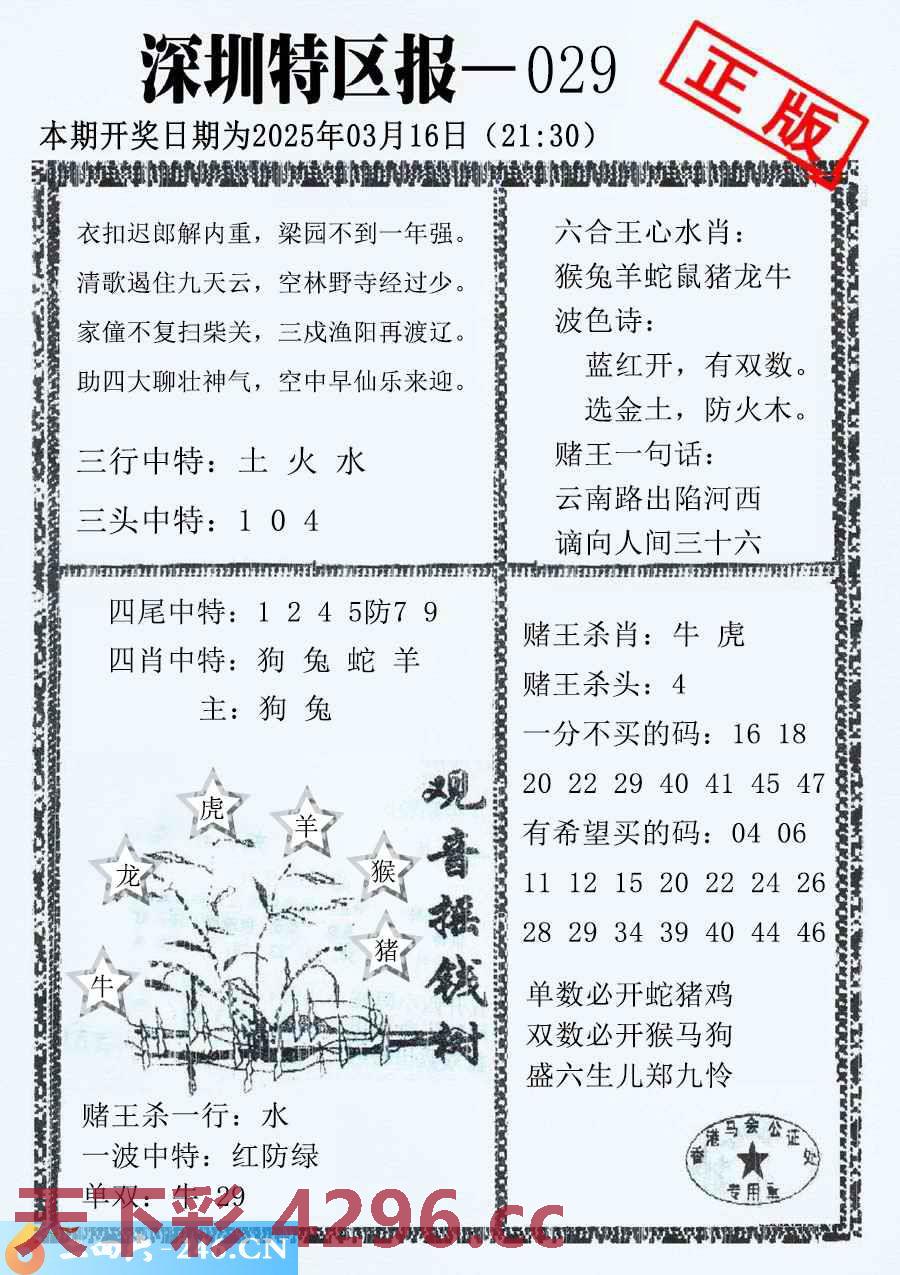 深圳特区报—029
正版
本期开奖日期为2025年03月16日（21:30）
衣扣迟郎解内重，梁园不到一年强。
清歌遏住九天云，空林野寺经过少。
家僮不复扫柴关，三戍渔阳再渡辽。
助四大聊壮神气，空中早仙乐来迎。
三行中特：土 火 水
三头中特：1 0 4
六合王心水肖：
猴兔羊蛇鼠猪龙牛
波色诗：
蓝红开，有双数。
选金土，防火木。
赌王一句话：
云南路出陷河西
谪向人间三十六
四尾中特：1 2 4 5防7 9
四肖中特：狗 兔 蛇 羊
主：狗 兔
虎
羊
龙
猴
猪
牛
观音摇钱树
赌王杀一行：水
一波中特：红防绿
单双：牛 29
赌王杀肖：牛 虎
赌王杀头：4
一分不买的码：16 18
20 22 29 40 41 45 47
有希望买的码：04 06
11 12 15 20 22 24 26
28 29 34 39 40 44 46
单数必开蛇猪鸡
双数必开猴马狗
盛六生儿郑九怜
香港马会公证处
专用章
天下彩4296.cc
246.CN